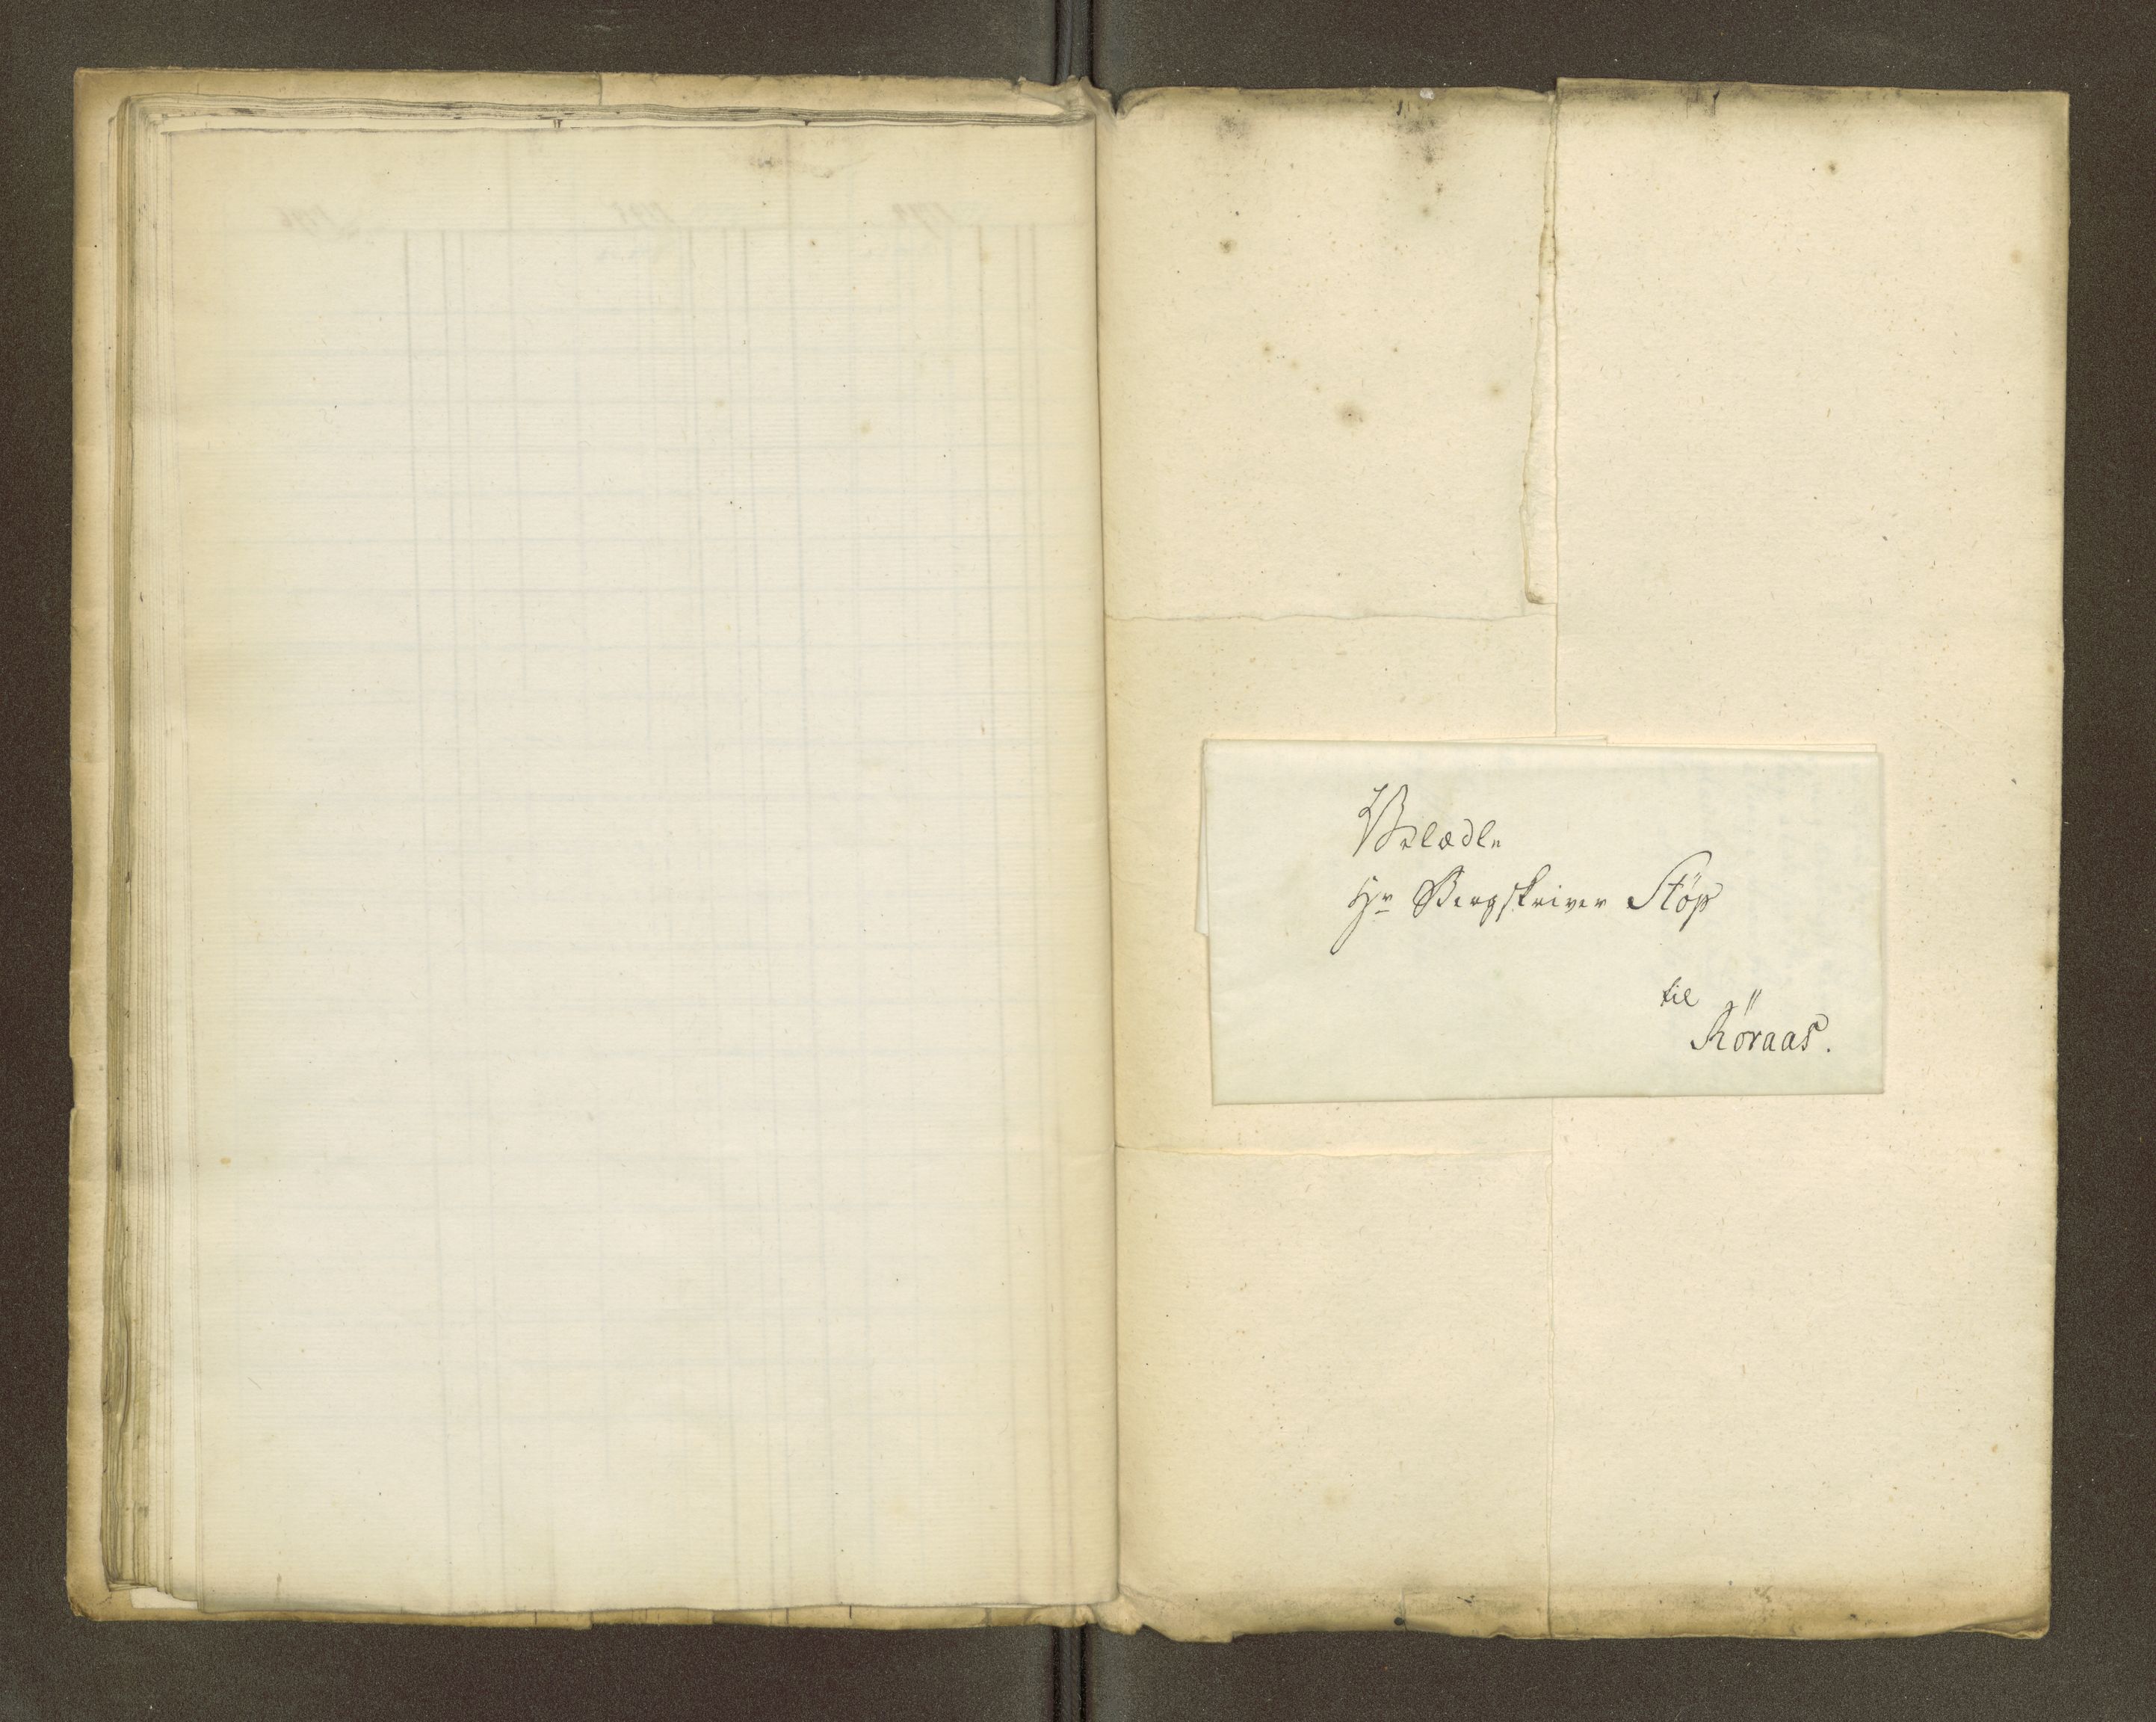 Velædle
Hr Bergskriver Støp
til
Röraas.